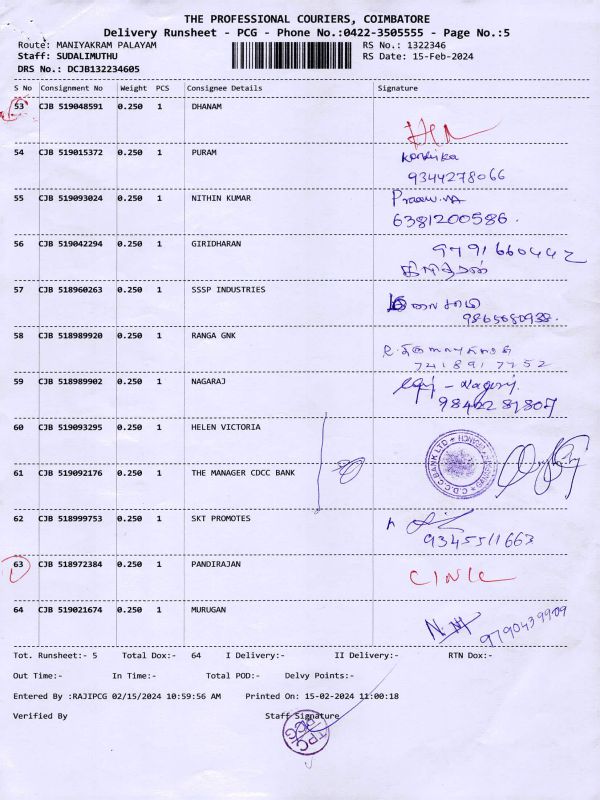 THE PROFESSIONAL COURIERS, COIMBATORE
Delivery Runsheet - PCG - Phone No.:0422-3505555 - Page No.:5
Route: MANIYAKRAM PALAYAM RS No.: 1322346
Staff: SUDALIMUTHU RS Date: 15-Feb-2024
DRS No.: DCJB132234605
S No Consignment No Weight PCS Consignee Details Signature
53 CJB 519048591 0.250 1 DHANAM
54 CJB 519015372 0.250 1 PURAM
9344278066
55 CJB 519093024 0.250 1 NITHIN KUMAR
6381200586.
56 CJB 519042294 0.250 1 GIRIDHARAN 9791660442
57 CJB 518960263 0.250 1 SSSP INDUSTRIES
58 CJB 518989920 0.250 1 RANGA GNK
7418917752
59 CJB 518989902 0.250 1 NAGARAJ
60 CJB 519093295 0.250 1 HELEN VICTORIA
61 CJB 519092176 0.250 1 THE MANAGER CDCC BANK
62 CJB 518999753 0.250 1 SKT PROMOTES
9345511663
63 CJB 518972384 0.250 1 PANDIRAJAN
64 CJB 519021674 0.250 1 MURUGAN
9790439909
Tot. Runsheet:- 5 Total Dox:- 64 I Delivery:- II Delivery:- RTN Dox:-
Out Time:- In Time:- Total POD:- Delvy Points:-
Entered By :RAJIPCG 02/15/2024 10:59:56 AM Printed On: 15-02-2024 11:00:18
Verified By Staff Signature